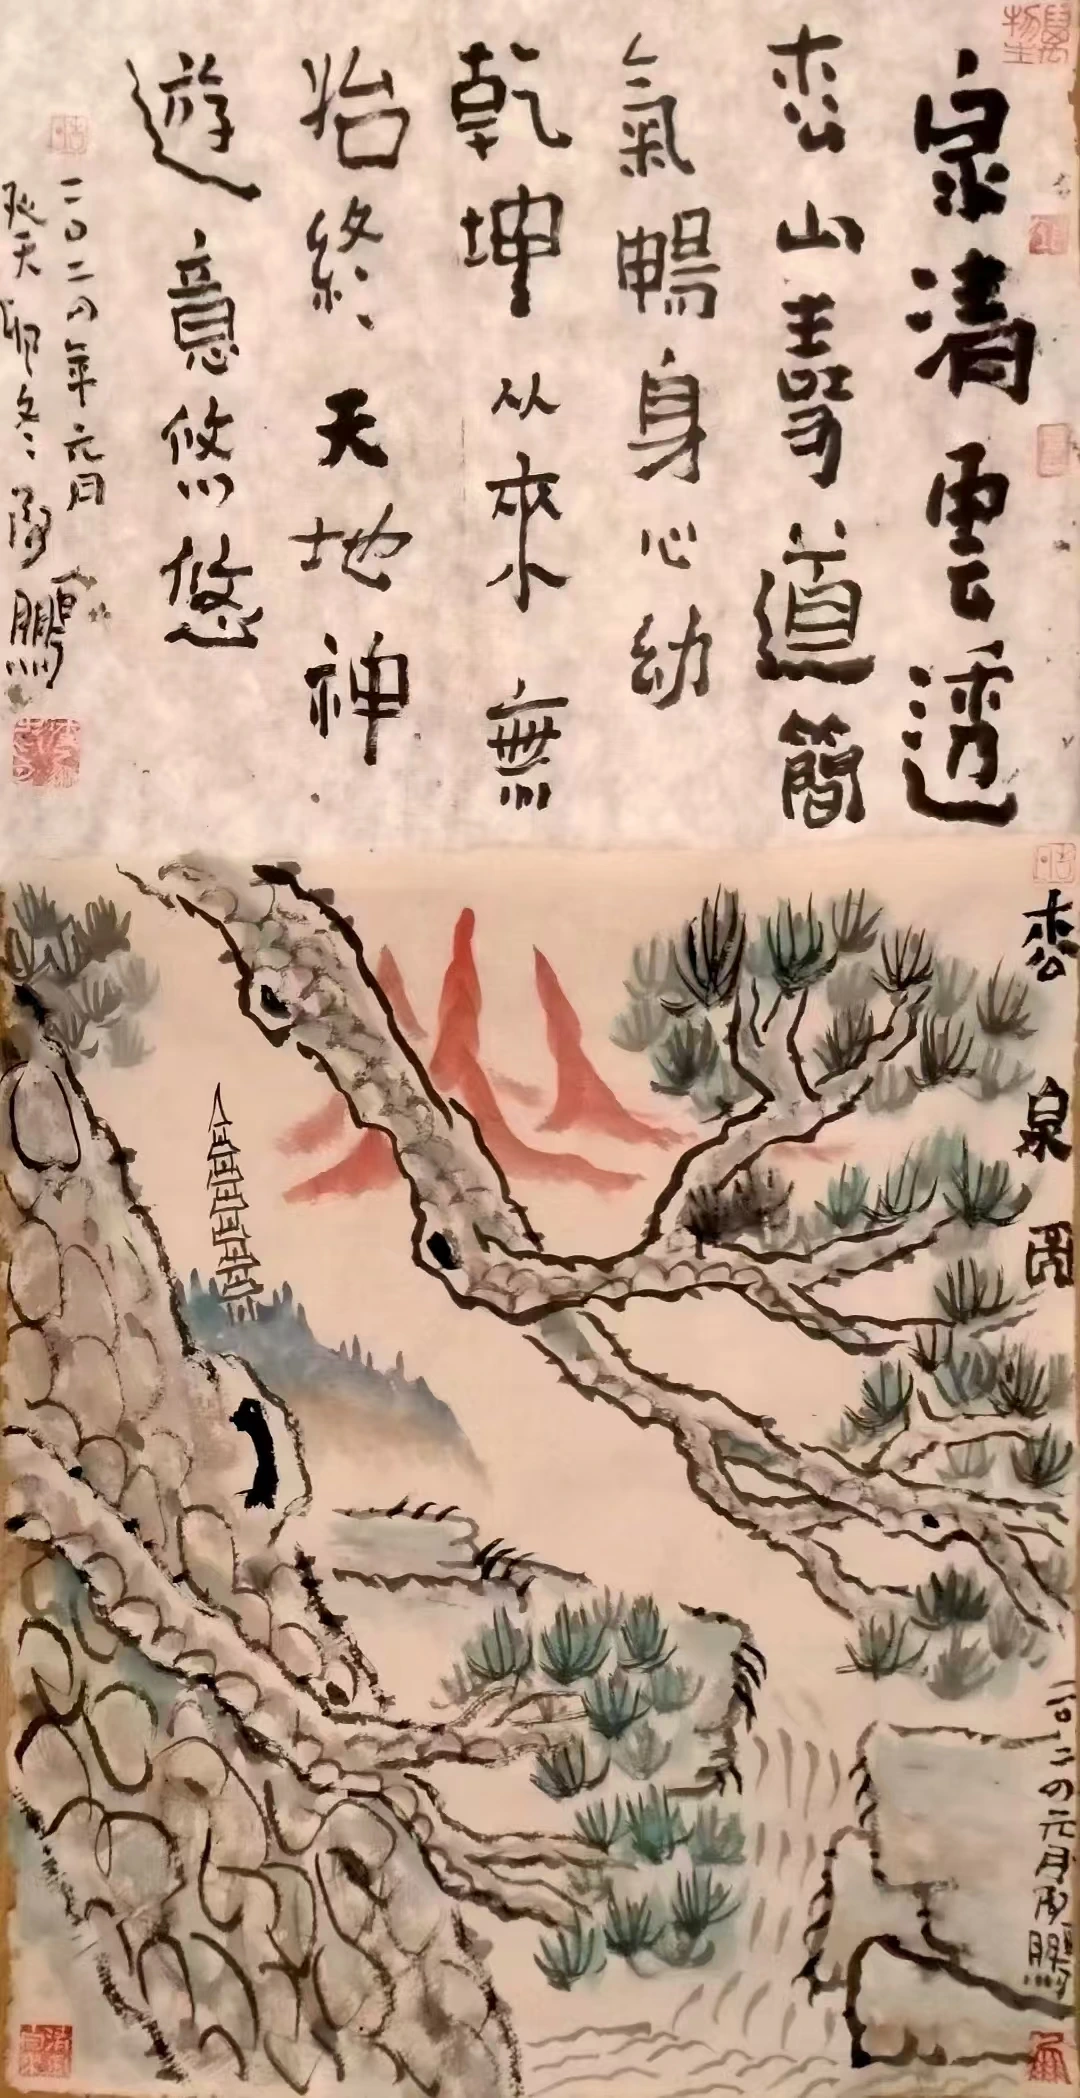 泉清雲透
枩山壽道簡
氣暢身心幼
乾坤从來無
始終天地神
遊意悠悠
二〇二四年元月
癸
冬
鵬
枩泉圖
二〇二四元月
鵬